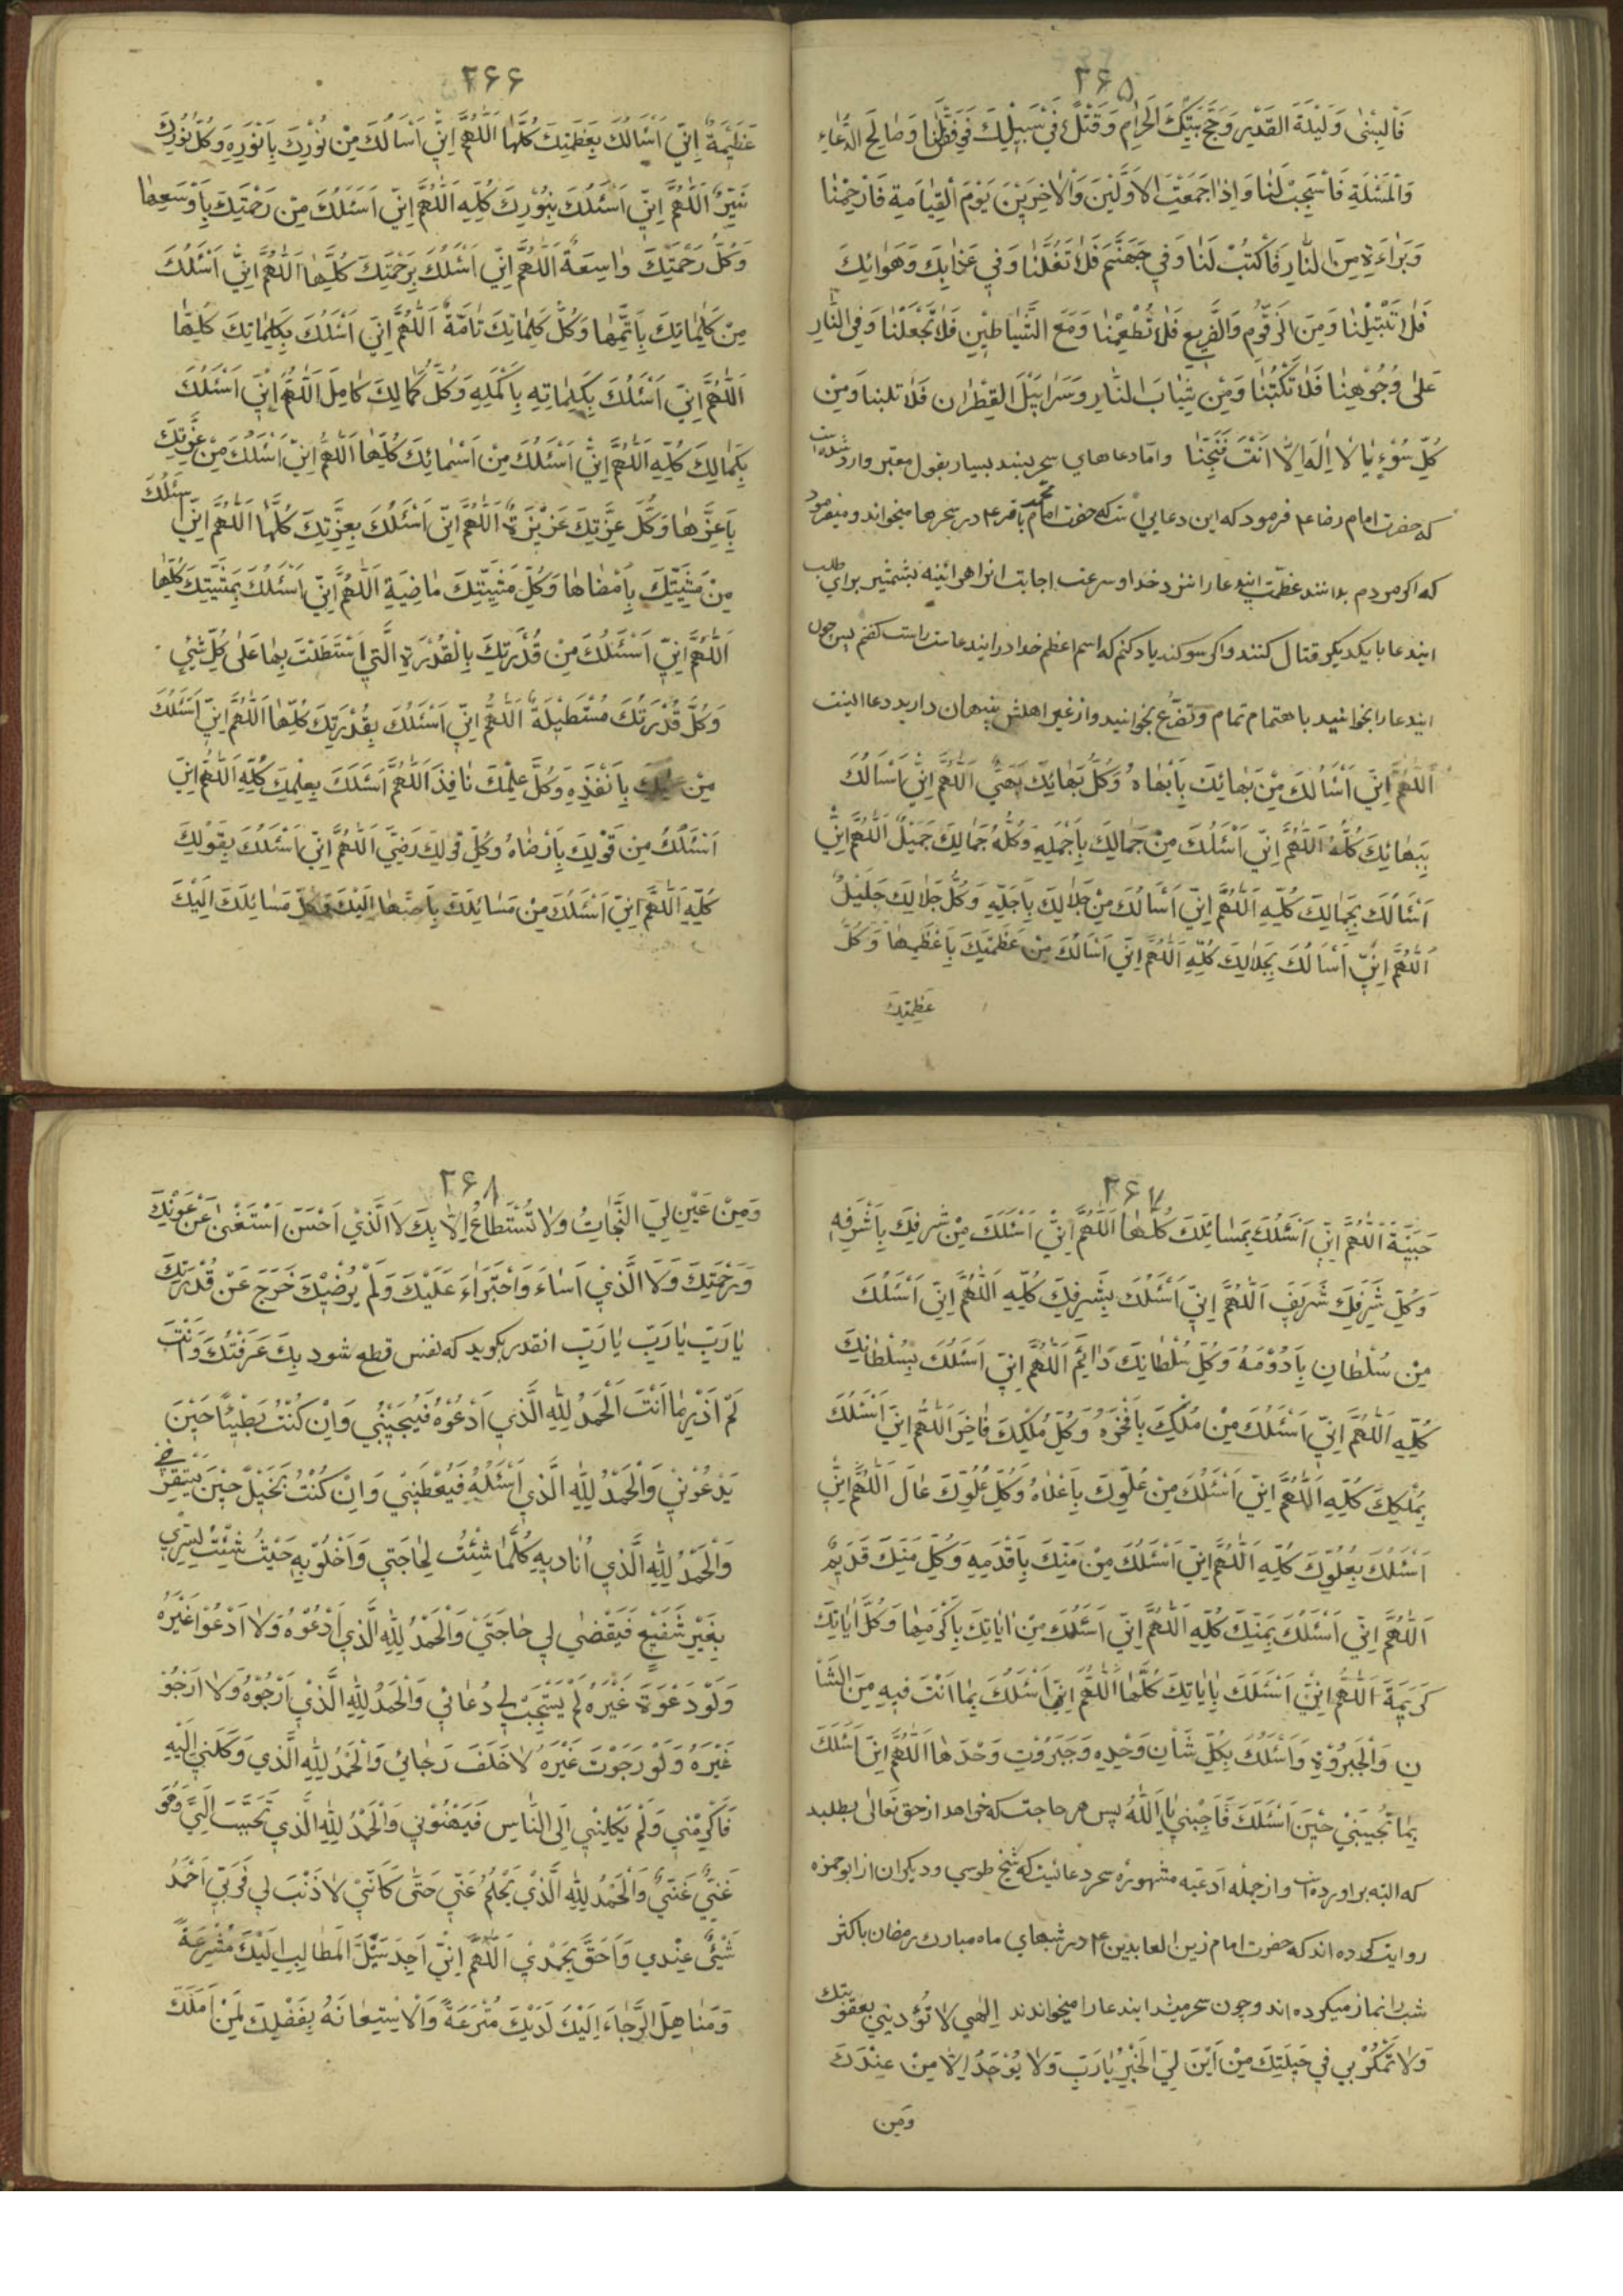 ۲۶۵
فَالبِسْنٰی وَلَیْلَةَ القَدْیرِ وَحَجَّ بَیْتِكَ الْحَرامِ وَقَتْلً فِیْ سَبِیْلِكَ فَوَفِّقْنٰا وَصٰالِحَ الدُّعٰاءِ
وَالْمَسْئَلَةِ فَاسْتَجِبْ لَنٰا وَاِذٰا جَمَعْتَ الْاَوَّلَیْنَ وَالْاٰخِرِیْنَ یَوْمَ الْقِیٰامَةِ فَارْحَمْنٰا
وَبَرٰاءَةٍ مِنَ النّٰارِ فَاکْتُبْ لَنٰا وَفِي جَهَنَّمَ فَلٰا تَغُلَّنٰا وَفي عَذٰابِكَ وَهَوٰانِكَ
فَلٰا تَبْتَلِنٰا وَمِنَ الزَّقُّوْمِ وَالضَّرِیْعِ فَلٰا تُطْعِمْنٰا وَمَعَ الشَّیٰاطِیْنِ فَلٰا تَجْعَلْنٰا وَفِي النّٰارِ
عَلٰی وُجُوْهِنٰا فَلٰا تَکْبُبْنٰا وَمِنْ ثِیٰابَ النّٰارِ وَسَرٰابِیْلَ القِطْرٰان فَلٰا تلبسنا وَمِنْ
کُلِّ سُوْءٍ یٰا لٰا اِلٰهَ اِلّٰا اَنْتَ فَنَجِّنٰا وامّا دعاهای سحر بسند بسیار بقول معتبر وارد شده است
که حضرت امام رضا ع فرمود که این دعایي است که حضرت امام محمد باقر ع در سحرها میخواند و میفرمود
که اکر مردم بدانند عظمت ایندعا را نزد خدا و سرعت اجابت انرا هر ائینه بشمشیر برای طلب
ایندعا با یکدیکر قتال کنند و اکر سوکند یاد کنم که اسم اعظم خدا در ایندعاست راست کفتم پس چون
ایندعا را بخوانید با هتمام تمام و تضرّع بخوانید و از غیر اهلش پنهان دارید دعا اینست
اَللّٰهُمَّ اِنِّي اَسْاَلُكَ مِنْ بَهٰائِكَ بِاَبْهٰاهُ وَکُلُّ بَهٰائِكَ بَهَيٌّ اَللّٰهُمَّ اِنّي اَسْاَلُكَ
بِبَهٰائِكَ کُلِّهِ اَللّٰهُمَّ اِنّي اَسْئَلُكَ مِنْ جَمٰالِكَ بِاَجْمَلِهِ وَکُلُّ جَمٰالِكَ جَمیْلٌ اَللّٰهُمَّ اِنّي
اَسْاَلُكَ بِجَمٰالِكَ کُلِّهِ اَللّٰهُمَّ اِنّي اَسْاَلُكَ مِنْ جَلٰالِكَ بِاَجَلِّهِ وَکُلُّ جَلٰالِكَ جَلَیْلٌ
اَللّٰهُمَّ اِنّي اَسْاَلُكَ بِجَلٰالِكَ کُلِّهِ اَللّٰهُمَّ اِنّي اَسْاَلُكَ مِنْ عَظَمَتِكَ بِاَعْظَمِهٰا وَکُلُّ
عَظَمَتِكَ
۲۶۶
عَظِیْمَةٌ اِنّي اَسْاَلُكَ بِعَظَمَتِكَ کُلِّهٰا اَللّٰهُمَّ اِنّي اَسْاَلُكَ مِنْ نُوْرِكَ بِاَنْوَرِهِ وَکُلُّ نُوْرِكَ
نَیِّرٌ اَللّٰهُمَّ اِنّي اَسْئَلُكَ بِنُوْرِكَ کُلِّهِ اَللّٰهُمَّ اِنّي اَسْئَلُكَ مِنْ رَحْمَتِكَ بِاَوْسَعِهٰا
وَکُلُّ رَحْمَتِكَ وٰاسِعَةٌ اَللّٰهُمَّ اِنّي اَسْئَلُكَ بِرَحْمَتِكَ کُلِّهٰا اَللّٰهُمَّ اِنّي اَسْئَلُكَ
مِنْ کَلِمٰاتِكَ بِاَتَمِّهٰا وَکُلُّ کَلِمٰاتِكَ تٰامَّةٌ اَللّٰهُمَّ اِنّي اَسْئَلُكَ بِکَلِمٰاتِكَ کُلِّهٰا
اَللّٰهُمَّ اِنّي اَسْئَلُكَ بِکَلِمٰاتِهِ بِاَکْمَلِهِ وَکُلُّ کَمٰالِكَ کٰامِلَ اَللّٰهُمَّ اِنّي اَسْئَلُكَ
بِکَمٰالِكَ کُلِّهِ اَللّٰهُمَّ اِنّي اَسْئَلُكَ مِنْ اَسْمٰائِكَ کُلِّهٰا اَللّٰهُمَّ اِنّي اَسْئَلُكَ مِنْ عِزَّتِكَ
بِاَعَزِّهٰا وَکُلُّ عِزَّتِكَ عَزیْزَةٌ اَللّٰهُمَّ اِنّي اَسْئَلُكَ بِعِزَّتِكَ کُلِّهٰا اَللّٰهُمَّ اِنّي اَسْئَلُكَ
مِنْ مَشِیَّتِكَ بِاَمْضٰاهٰا وَکُلُّ مَشِیَّتِكَ مٰاضِیَة اَللّٰهُمَّ اِنّي اَسْئَلُكَ بِمَشِیَّتِكَ کُلِّهٰا
اَللّٰهُمَّ اِنّي اَسْئَلُكَ مِنْ قُدْرَتِكَ بِالْقُدْرَةِ الَّتي اَسْتَطَلْتَ بِهٰا عَلٰی کُلِّ شَیْئٍ
وَکُلُّ قُدْرَتِكَ مُسْتَطِیْلَةٌ اَللّٰهُمَّ اِنّي اَسْئَلُكَ بِقُدْرَتِكَ کُلِّهٰا اَللّٰهُمَّ اِنّي اَسْئَلُكَ
مِنْ عِلْمِكَ بِاَنْفَذِهِ وَکُلُّ عِلْمِكَ نٰافِذَ اَللّٰهُمَّ اَسْئَلُكَ بِعِلْمِكَ کُلِّهِ اَللّٰهُمَّ اِنّي
اَسْئَلُكَ مِنْ قَوْلِكَ بِاَرْضٰاهُ وَکُلُّ قَوْلِكَ رَضِيَّ اَللّٰهُمَّ اِنّي اَسْئَلُكَ بِقَوْلِكَ
کُلِّهِ اَللّٰهُمَّ اِنّي اَسْئَلُكَ مِنْ مَسٰائِلِكَ بِاَحَبِّهٰا اِلَیْكَ وَکُلُّ مَسٰائِلِكَ اِلَیْكَ
۲۶۷
حَبیْبَةَ اَللّٰهُمَّ اِنّي اَسْئَلُكَ بِمَسٰائِلِكَ کُلِّهٰا اَللّٰهُمَّ اِنّي اَسْئَلُكَ مِنْ شَرَفِكَ بِاَشْرَفِهِ
وَکُلُّ شَرَفِكَ شَرَیفَ اَللّٰهُمَّ اِنّي اَسْئَلُكَ بِشَرَفِكَ کُلِّهِ اَللّٰهُمَّ اِنّي اَسْئَلُكَ
مِنْ سُلْطٰانِ بِاَدْوَمِهُ وَکُلُّ سُلْطٰانِكَ دٰائِمَ اَللّٰهُمَّ اِنّي اَسْئَلُكَ بِسُلْطٰانِكَ
کُلِّهِ اَللّٰهُمَّ اِنّي اَسْئَلُكَ مِنْ مُلْکِكَ بِاَفْخَرِهُ وَکُلُّ مُلْکِكَ فٰاخِرَ اَللّٰهُمَّ اِنّي اَسْئَلُكَ
بِمُلْکِكَ کُلِّهِ اَللّٰهُمَّ اِنّي اَسْئَلُكَ مِنْ عُلُوِّكَ بِاَعْلٰاهُ وَکُلُّ عُلُوِّكَ عٰالَ اَللّٰهُمَّ اِنّي
اَسْئَلُكَ بِعُلُوِّكَ کُلِّهِ اَللّٰهُمَّ اِنّي اَسْئَلُكَ مِنْ مَنِّكَ بِاَقْدَمِهِ وَکُلُّ مَنِّكَ قَدیْمٌ
اَللّٰهُمَّ اِنّي اَسْئَلُكَ بِمَنِّكَ کُلِّهِ اَللّٰهُمَّ اِنّي اَسْئَلُكَ مِنْ اٰیٰاتِكَ بِاَکْرَمِهٰا وَکُلُّ اٰیٰاتِكَ
کَرِیْمَةَ اَللّٰهُمَّ اِنّي اَسْئَلُكَ بِاٰیٰاتِكَ کُلِّهٰا اَللّٰهُمَّ اِنّي اَسْئَلُكَ بِمٰا اَنْتَ فیهِ مِنَ الشَّاْ
نِ وَالْجَبَرُوْةِ وَاَسْئَلُكَ بِکُلِّ شَأْنِ وَحْدِه وَجَبَرُوْتِ وَحْدَهٰا اَللّٰهُمَّ اِنّي اَسْئَلُكَ
بِمٰا تُجیبُنِيْ حِیْنَ اَسْئَلُكَ فَاَجِبْنيِ یٰا اَللّٰهُ پس هر حاجت که خواهد از حق تعالی بطلبد
که البته براورده است و از جمله ادعیه مشهوره سحر دعائیست که شیخ طوسي و دیکران از ابو حمزه
روایت کرده اند که حضرت امام زین العابدین ع در شبهاي ماه مبارك رمضان باکثر
شب را نماز میکرده اند و چون سحر میشد ایندعا را میخواندند اِلٰهي لٰا تُؤَدِّبْني بِعُقُوْبَتِكَ
وَلٰا تَمْکُرْ بي في حیْلَتِكَ مِنْ اَیْنَ لِيَ الْخَیْرُ یٰا رَبِّ وَلٰا یُوْجَدُ اِلّٰا مِنْ عِنْدِكَ
وَمِن
۲۶۸
وَمِنْ عَیْنِ لِيَ النَّجٰاتُ وَلٰا تُسْتَطٰاعُ اِلّٰا بِكَ لَا الَّذيْ اَحْسَنَ اَسْتَغْنٰی عَنْ عَوْنِكَ
وَرَحْمَتِكَ وَلَا الَّذيْ اَسٰاءَ وَاَجْتَرٰاءَ عَلَیْكَ وَلَمْ یُرْضِكَ خَرَجَ عَنْ قُدْرَتِكَ
یٰا رَبِّ یٰا رَبِّ یٰا رَبِّ انقدر بکوید که نفس قطع شود بِكَ عَرَفْتُكَ وَاَنْتَ
لَمْ اَدْرِ مٰا اَنْتَ اَلْحَمْدُ لِلّٰهِ الَّذي اَدْعُوْهُ فَیُجیْبُنيْ وَاِنْ کُنْتُ بَطْیئًا حیْنَ
یَدْعُوْنيْ وَالْحَمْدُ لِلّٰهِ الَّذي اَسْئَلُهُ فَیُعْطیْنيْ وَاِنْ کُنْتُ بَخیْلً حیْنَ یَسْتَقْرِضُ
وَالْحَمْدُ لِلّٰهِ الَّذي اُنٰادیهِ کُلَّمٰا شِئْتُ لِحٰاجَتي وَاَخْلُوْ بِهِ حَیْثُ شِئْتُ لِسِرّي
بِغَیْرِ شَفیْعٍ فَیَقْضٰي لي حٰاجَتيْ وَالْحَمْدُ لِلّٰهِ الَّذي اَدْعُوْهُ وَلٰا اَدْعُوْا غَیْرَهُ
وَلَوْ دَعْوَةَ غَیْرَهُ لَمْ یَسْتَجِبْ لي دُعٰائي وَالْحَمْدُ لِلّٰهِ الَّذيْ اَرْجُوْهُ وَلٰا اَرْجُوْ
غَیْرَهُ وَلَوْ رَجَوْتَ غَیْرَهُ لَا خَلَفَ رَجٰائي وَالْحَمْدُ لِلّٰهِ الَّذي وَکَلَنيْ اِلَیْهِ
فَاَکْرَمَني وَلَمْ یَکِلْنيْ اِلَی النّٰاسِ فَیُهیْنُوْني وَالْحَمْدُ لِلّٰهِ الَّذي تَحَبَّبَ اِلَيَّ وَهُوَ
غَنيٌّ عَنّي وَالْحَمْدُ لِلّٰهِ الَّذيْ یَحْلُمُ عَنّي حَتّٰی کَاَنّيْ لٰا ذَنْبَ لي فَرَبّي اَحْمَدُ
شَیْئٍ عِنْدي وَاَحَقُّ بِحَمْديْ اَللّٰهُمَّ اِنّي اَجِدُ سُبُلَ الْمَطٰالِبِ اِلَیْكَ مُشْرَعَةً
وَمَنٰاهِلَ الرَّجٰاءَ اِلَیْكَ لَدَیْكَ مُتْرَعَةً وَالْاِسْتِعٰانَةُ بِفَضْلِكَ لِمَنْ اَمَلَكَ